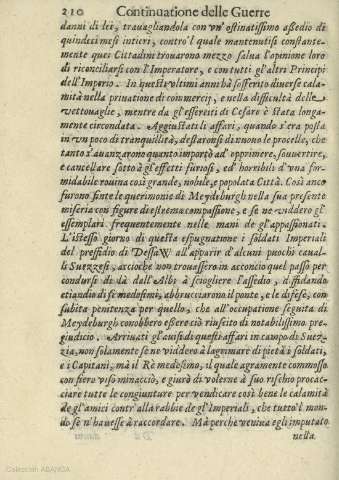 210 Continuatione delle Guerre
danni di lei, trauagliandola con vn'ostinatissimo assedio di
quindeci mesi intieri, contro'l quale mantenutisi constante-
mente quei Cittadini trouarono mezzo salua l'opinione loro
di riconciliarsi con l'Imperatore, e con tutti gl'altri Principi
dell'Imperio. In questi vltimi anni hà sofferito diuerse cala-
mità nella priuatione di commercij, e nella difficultà delle
vettouaglie, mentre da gl'esserciti di Cesare è stata longa-
mente circondata. Aggiustati li affari, quando s'era posta
in vn poco di tranquillità, destaronsi di nuouo le procelle, che
tanto s'auanzarono quanto importò ad opprimere, souuertire,
e cancellare sotto à gl'effetti furiosi, ed'horribili d'vna for-
midabile rouina così grande, nobile, e popolata Città. Così anco
furono finte le querimonie di Meydeburgh nella sua presente
miseria con figure di estrema compassione, e se ne viddero gl'
essemplari frequentemente nelle mani de gl'appassionati.
L'istesso giorno di questa espugnatione i soldati Imperiali
del pressidio di Dessaw all'apparir d'alcuni puochi caual-
li Suezzesi, accioche non trouassero in acconcio quel passo per
condursi di là dall'Albi à sciogliere l'assedio, diffidando
etiandio di se medesimi, abbrucciarono il ponte, e le difese, con
subita penitenza per quello, che all'occupatione seguita di
Meydeburgh conobbero essere ciò riuscito di notabilissimo pre-
giudicio. Arriuati gl'auisi di questi affari in campo di Suez-
zia, non solamente se ne viddero à lagrimare di pietà i soldati,
e i Capitani, mà il Rè medesimo, il quale agramente commosso
con fiero viso minacciò, e giurò di volerne à suo rischio procac-
ciare tutte le congiunture per vendicare così bene le calamità
de gl'amici contr'alla rabbie de gl'Imperiali, che tutto'l mon-
do se n'hauesse à raccordare. Mà perche veniua egli imputato
nella.
Colección ABANCA